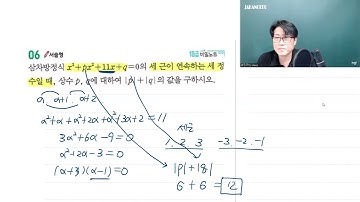 06 서술형
삼차방정식 x³+px²+11x+q=0의 세 근이 연속하는 세 정
수일 때, 상수 p, q에 대하여 |p|+|q|의 값을 구하시오.
α, α+1, α+2
α²+α+α²+2α+α²+3α+2=11
3α²+6α-9=0
α²+2α-3=0
(α+3)(α-1)=0
세근
1, 2, 3
-3, -2, -1
|p|+|q|
6+6=12